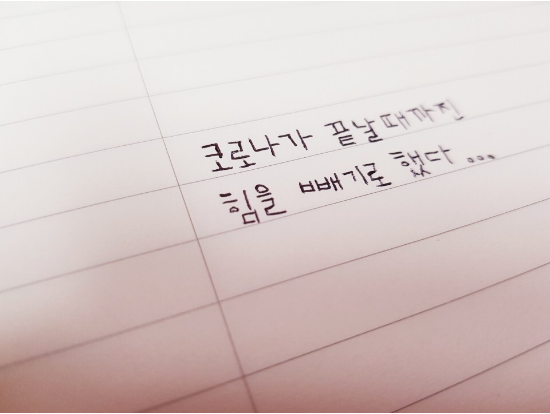 코로나가 끝날때까진
힘을 빼기로 했다...